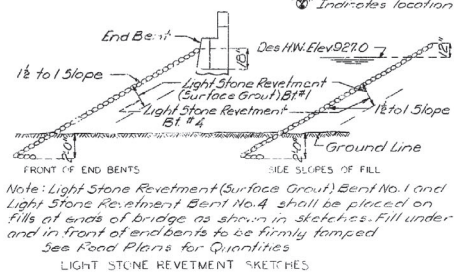 Indicates location
End Bent
18"
Des HW. Elev 927.0
12"
1½ to 1 Slope
Light Stone Revetment
(Surface Grout) Bt #1
Light Stone Revetment
Bt. #4
1½ to 1 Slope
2'-0"
2'-0"
Ground Line
FRONT OF END BENTS
SIDE SLOPES OF FILL
Note: Light Stone Revetment (Surface Grout) Bent No. 1 and
Light Stone Revetment Bent No. 4 shall be placed on
fills at ends of bridge as shown in sketches. Fill under
and in front of end bents to be firmly tamped
See Road Plans for Quantities
LIGHT STONE REVETMENT SKETCHES